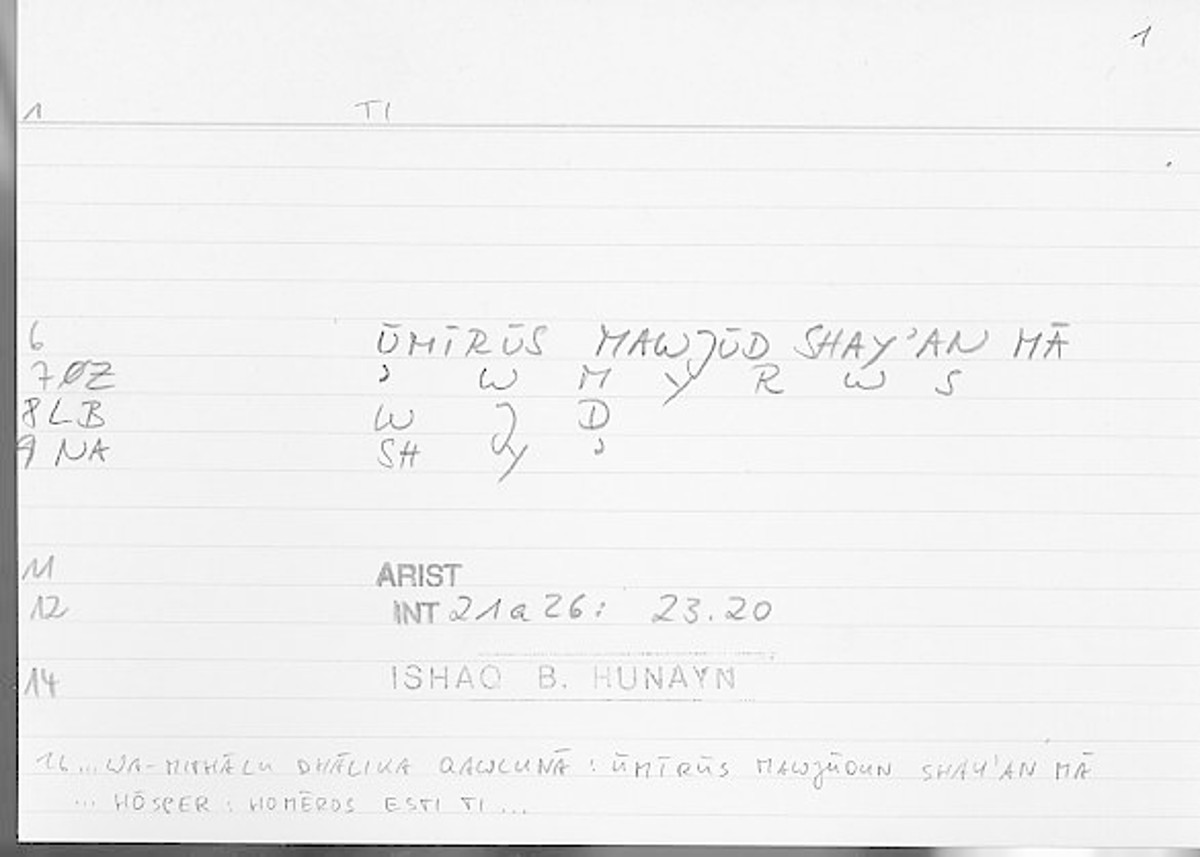 1
1 TI
6 ŪMĪRŪS MAWJŪD SHAY'AN MĀ
7 ØZ ' W M Y R W S
8 LB W J D
9 NA SH Y '
11 ARIST
12 INT 21a26: 23.20
14 ISHAQ B. HUNAYN
16 ... WA-MITHĀLU DHĀLIKA QAWLUNĀ : ŪMĪRŪS MAWJŪDUN SHAY'AN MĀ
... HŌSPER : HOMĒROS ESTI TI ...